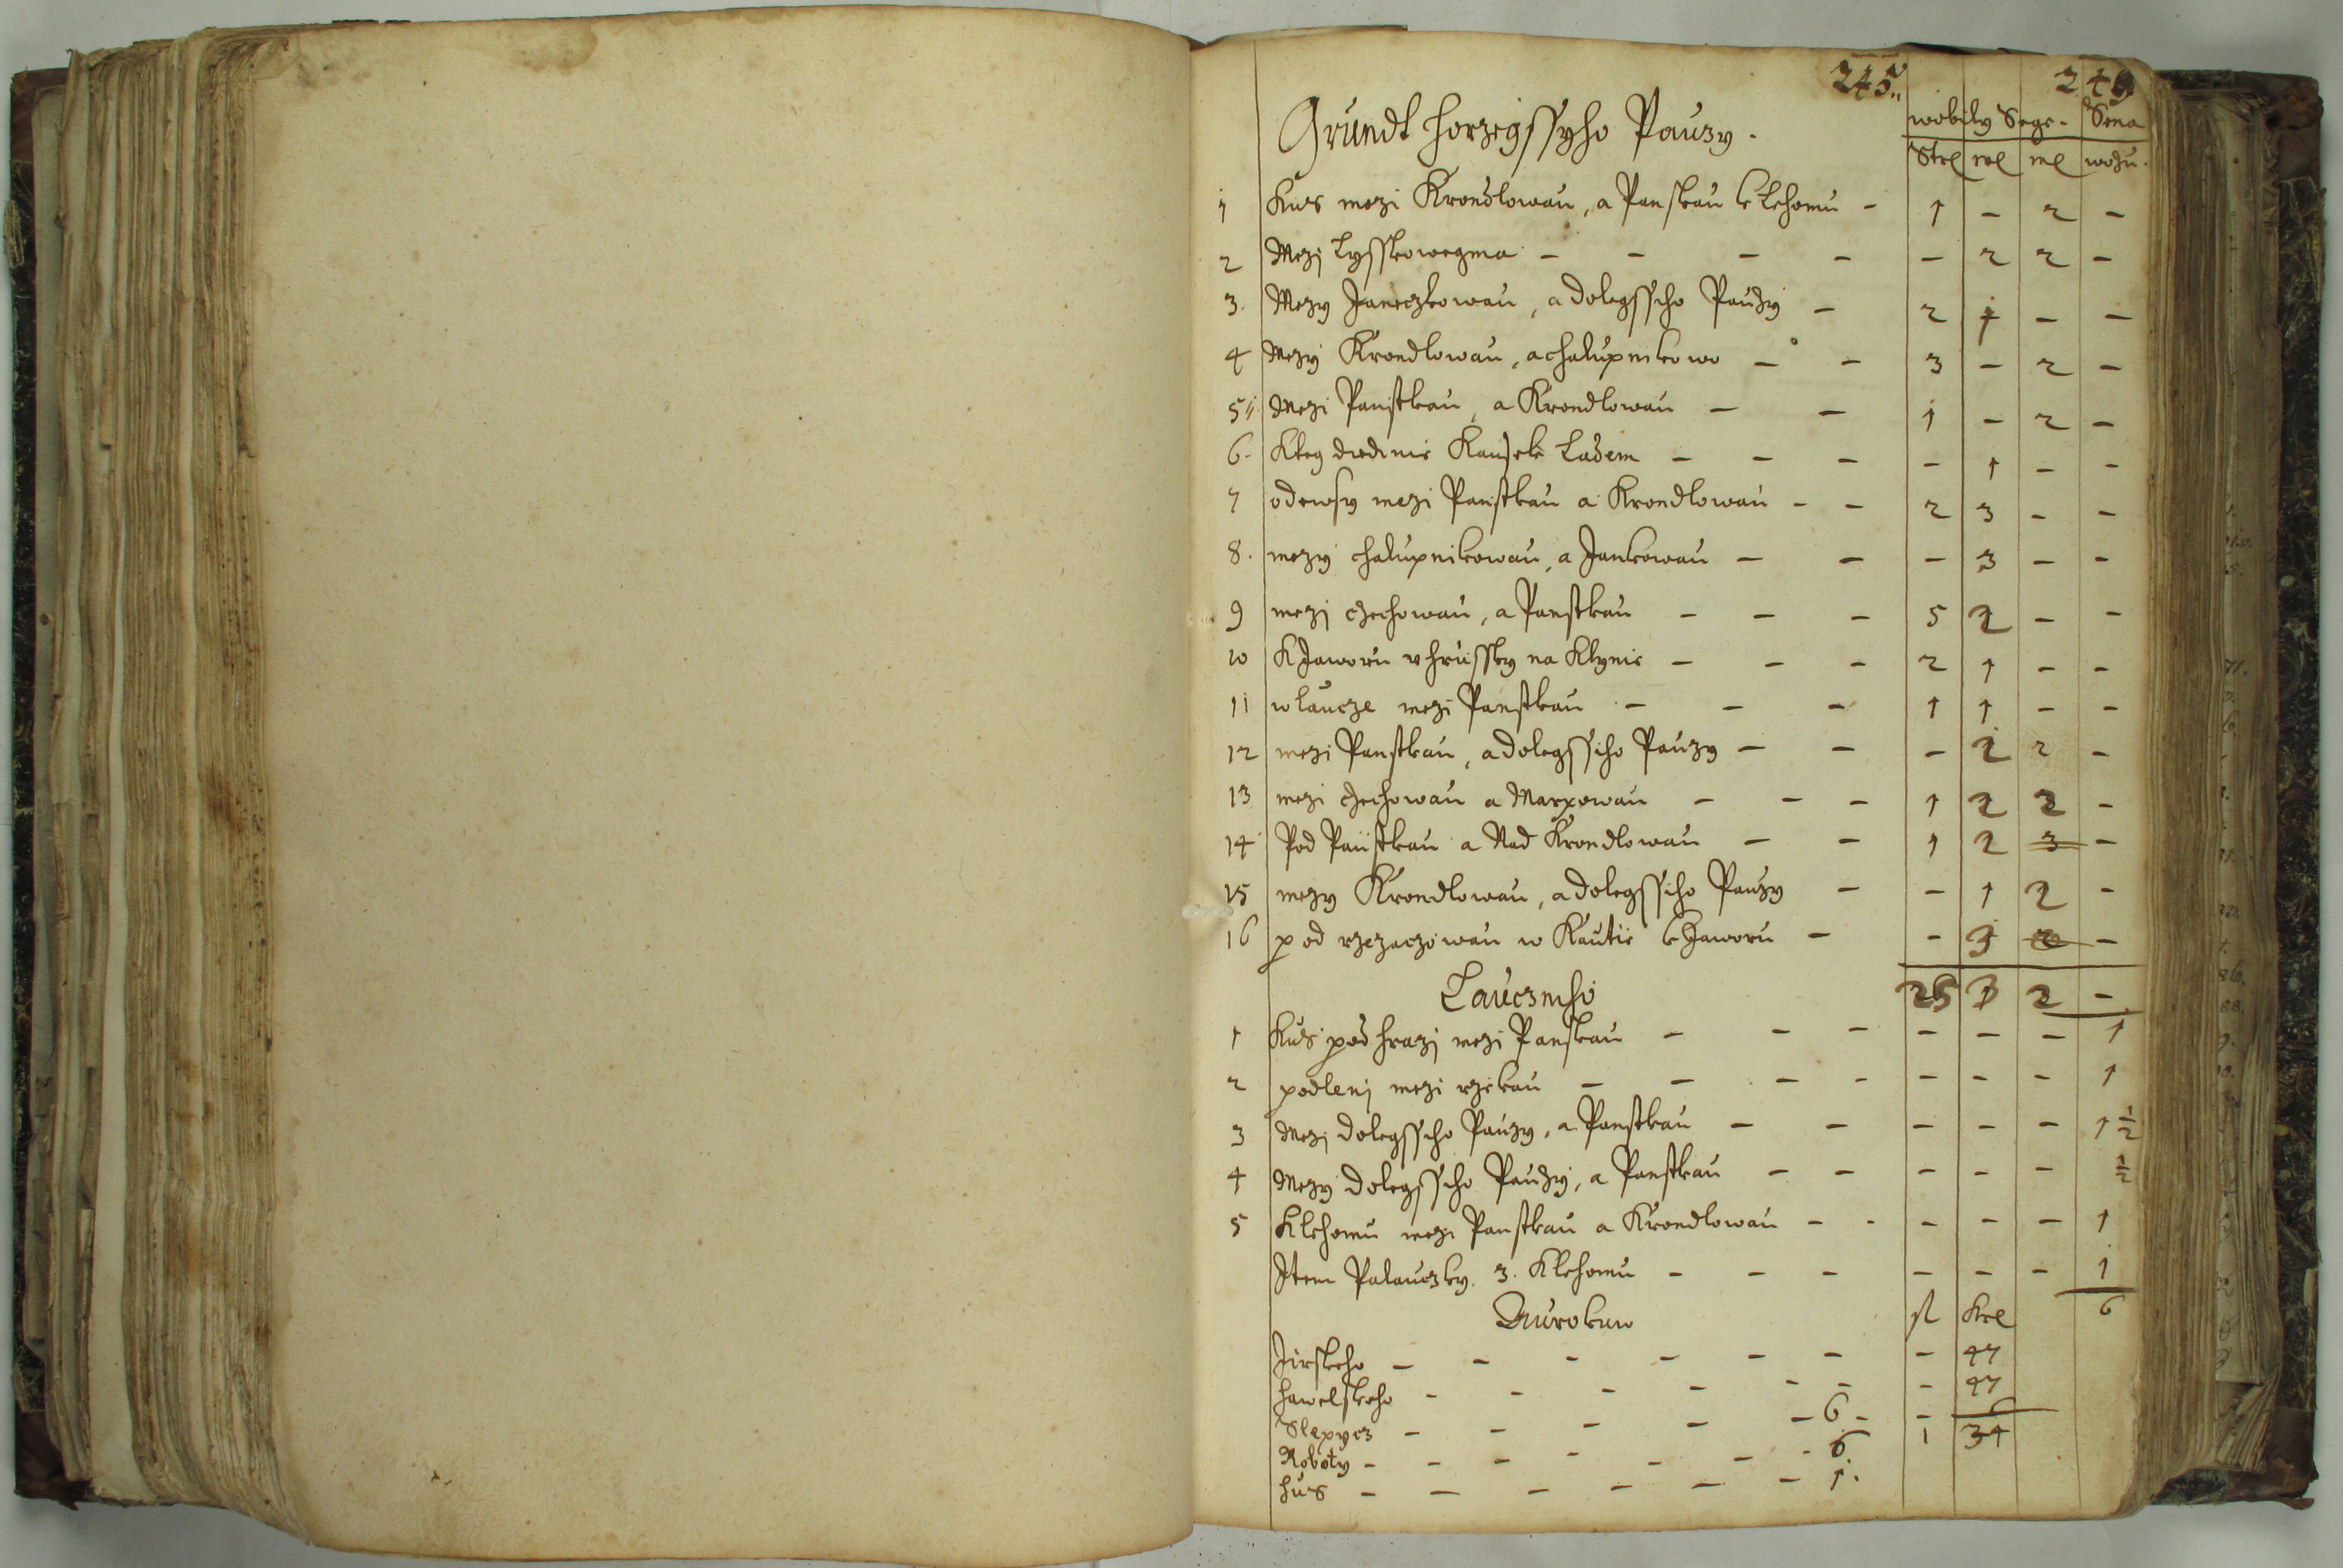 245. 249
Grundt horzegssyho Pauzy. wobily Sege- Sena
Strl wl ml wozu.
1 Kus mezi Krondlowau, a Panskau k Lehomu - 1 - 2 -
2 Mezj Lysskowegma - - - - - 2 2 -
3. Mezy Janeczkowau, a dolegssiho Pauzy - 2 1 - -
4 Mezy Krondlowau, a chalupnikowo - - 3 - 2 -
5 Mezi Panstkau, a Krondlowau - - 1 - 2 -
6. Kteg diedinie Ladem - - - - 1 - -
7 odewsy mezi Panstkau a Krondlowau - - 2 3 - -
8. mezy chalupnikowau, a Jankowau - - - 3 - -
9 mezj czechowau, a Panstkau - - - 5 2 - -
10 K Jaworu v hrussky na Klynie - - - 2 1 - -
11 w laucze mezi Panstkau - - - 1 1 - -
12 mezi Panstkau, a dolegssiho Pauzy - - - 2 2 -
13 mezi czechowau a Marxowau - - - 1 2 2 -
14 Pod Panstkau a Nad Krondlowau - - 1 2 3 -
15 mezy Krondlowau, a dolegssiho Pauzy - - 1 2 -
16 pod rzezaczowau w Kautie k Jaworu - - 3 2 -
Lauczneho 25 3 2 -
1 Kus pod hrazj mezi Panskau - - - - - - 1
2 podlenj mezi rzekau - - - - - - - 1
3 Mezj dolegssiho Pauzy, a Panstkau - - - - - 1 1/2
4 Mezy dolegssiho Pauzy, a Panstkau - - - - - 1/2
5 K Lehomu mezi Panstkau a Krondlowau - - - - - 1
Item Palauczky. 3. K Lehomu - - - - - - 1
Aurokuw fl Krl 6
Jirskeho - - - - - - - 47
hawelskeho - - - - - - - 47
Slepycz - - - - 6 - -
1 34
Roboty - - - - - - 6.
hus - - - - - - 1.